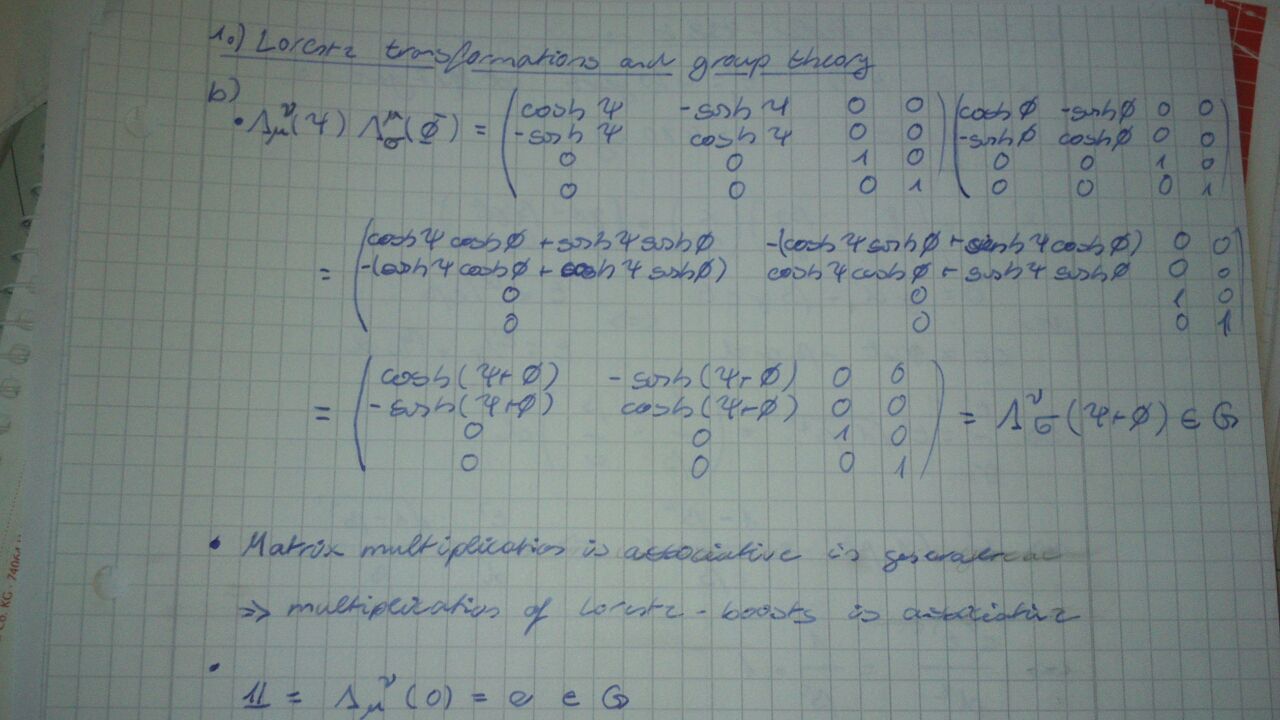 1.) Lorentz transformations and group theory
b)
• Λμ^ν(Ψ) Λσ^μ(Φ) = ( cosh Ψ -sinh Ψ 0 0 ) ( cosh ϕ -sinh ϕ 0 0 )
-sinh Ψ cosh Ψ 0 0 -sinh ϕ cosh ϕ 0 0
0 0 1 0 0 0 1 0
0 0 0 1 0 0 0 1
= ( cosh Ψ cosh ϕ + sinh Ψ sinh ϕ -(cosh Ψ sinh ϕ + sinh Ψ cosh ϕ) 0 0 )
-(sinh Ψ cosh ϕ + cosh Ψ sinh ϕ) cosh Ψ cosh ϕ + sinh Ψ sinh ϕ 0 0
0 0 1 0
0 0 0 1
= ( cosh(Ψ+ϕ) -sinh(Ψ+ϕ) 0 0 ) = Λ^ν σ (Ψ+ϕ) ∈ G
-sinh(Ψ+ϕ) cosh(Ψ+ϕ) 0 0
0 0 1 0
0 0 0 1
• Matrix multiplication is associative in general
⇒ multiplication of Lorentz-boosts is associative
• 𝟙 = Λμ^ν(0) = e ∈ G